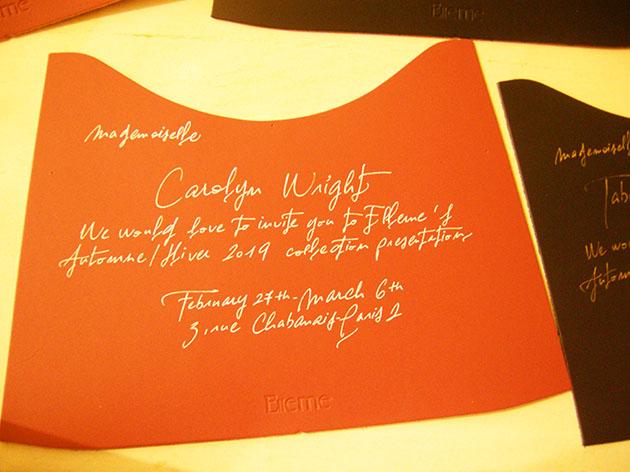 Bieme
mademoiselle
Carolyn Wright
We would love to invite you to
Automne/Hiver 2019 collection presentation
February 27th-March 6th
3, rue Chabanais-Paris 2
Bieme
mademoiselle
Tab
We wou
Autom